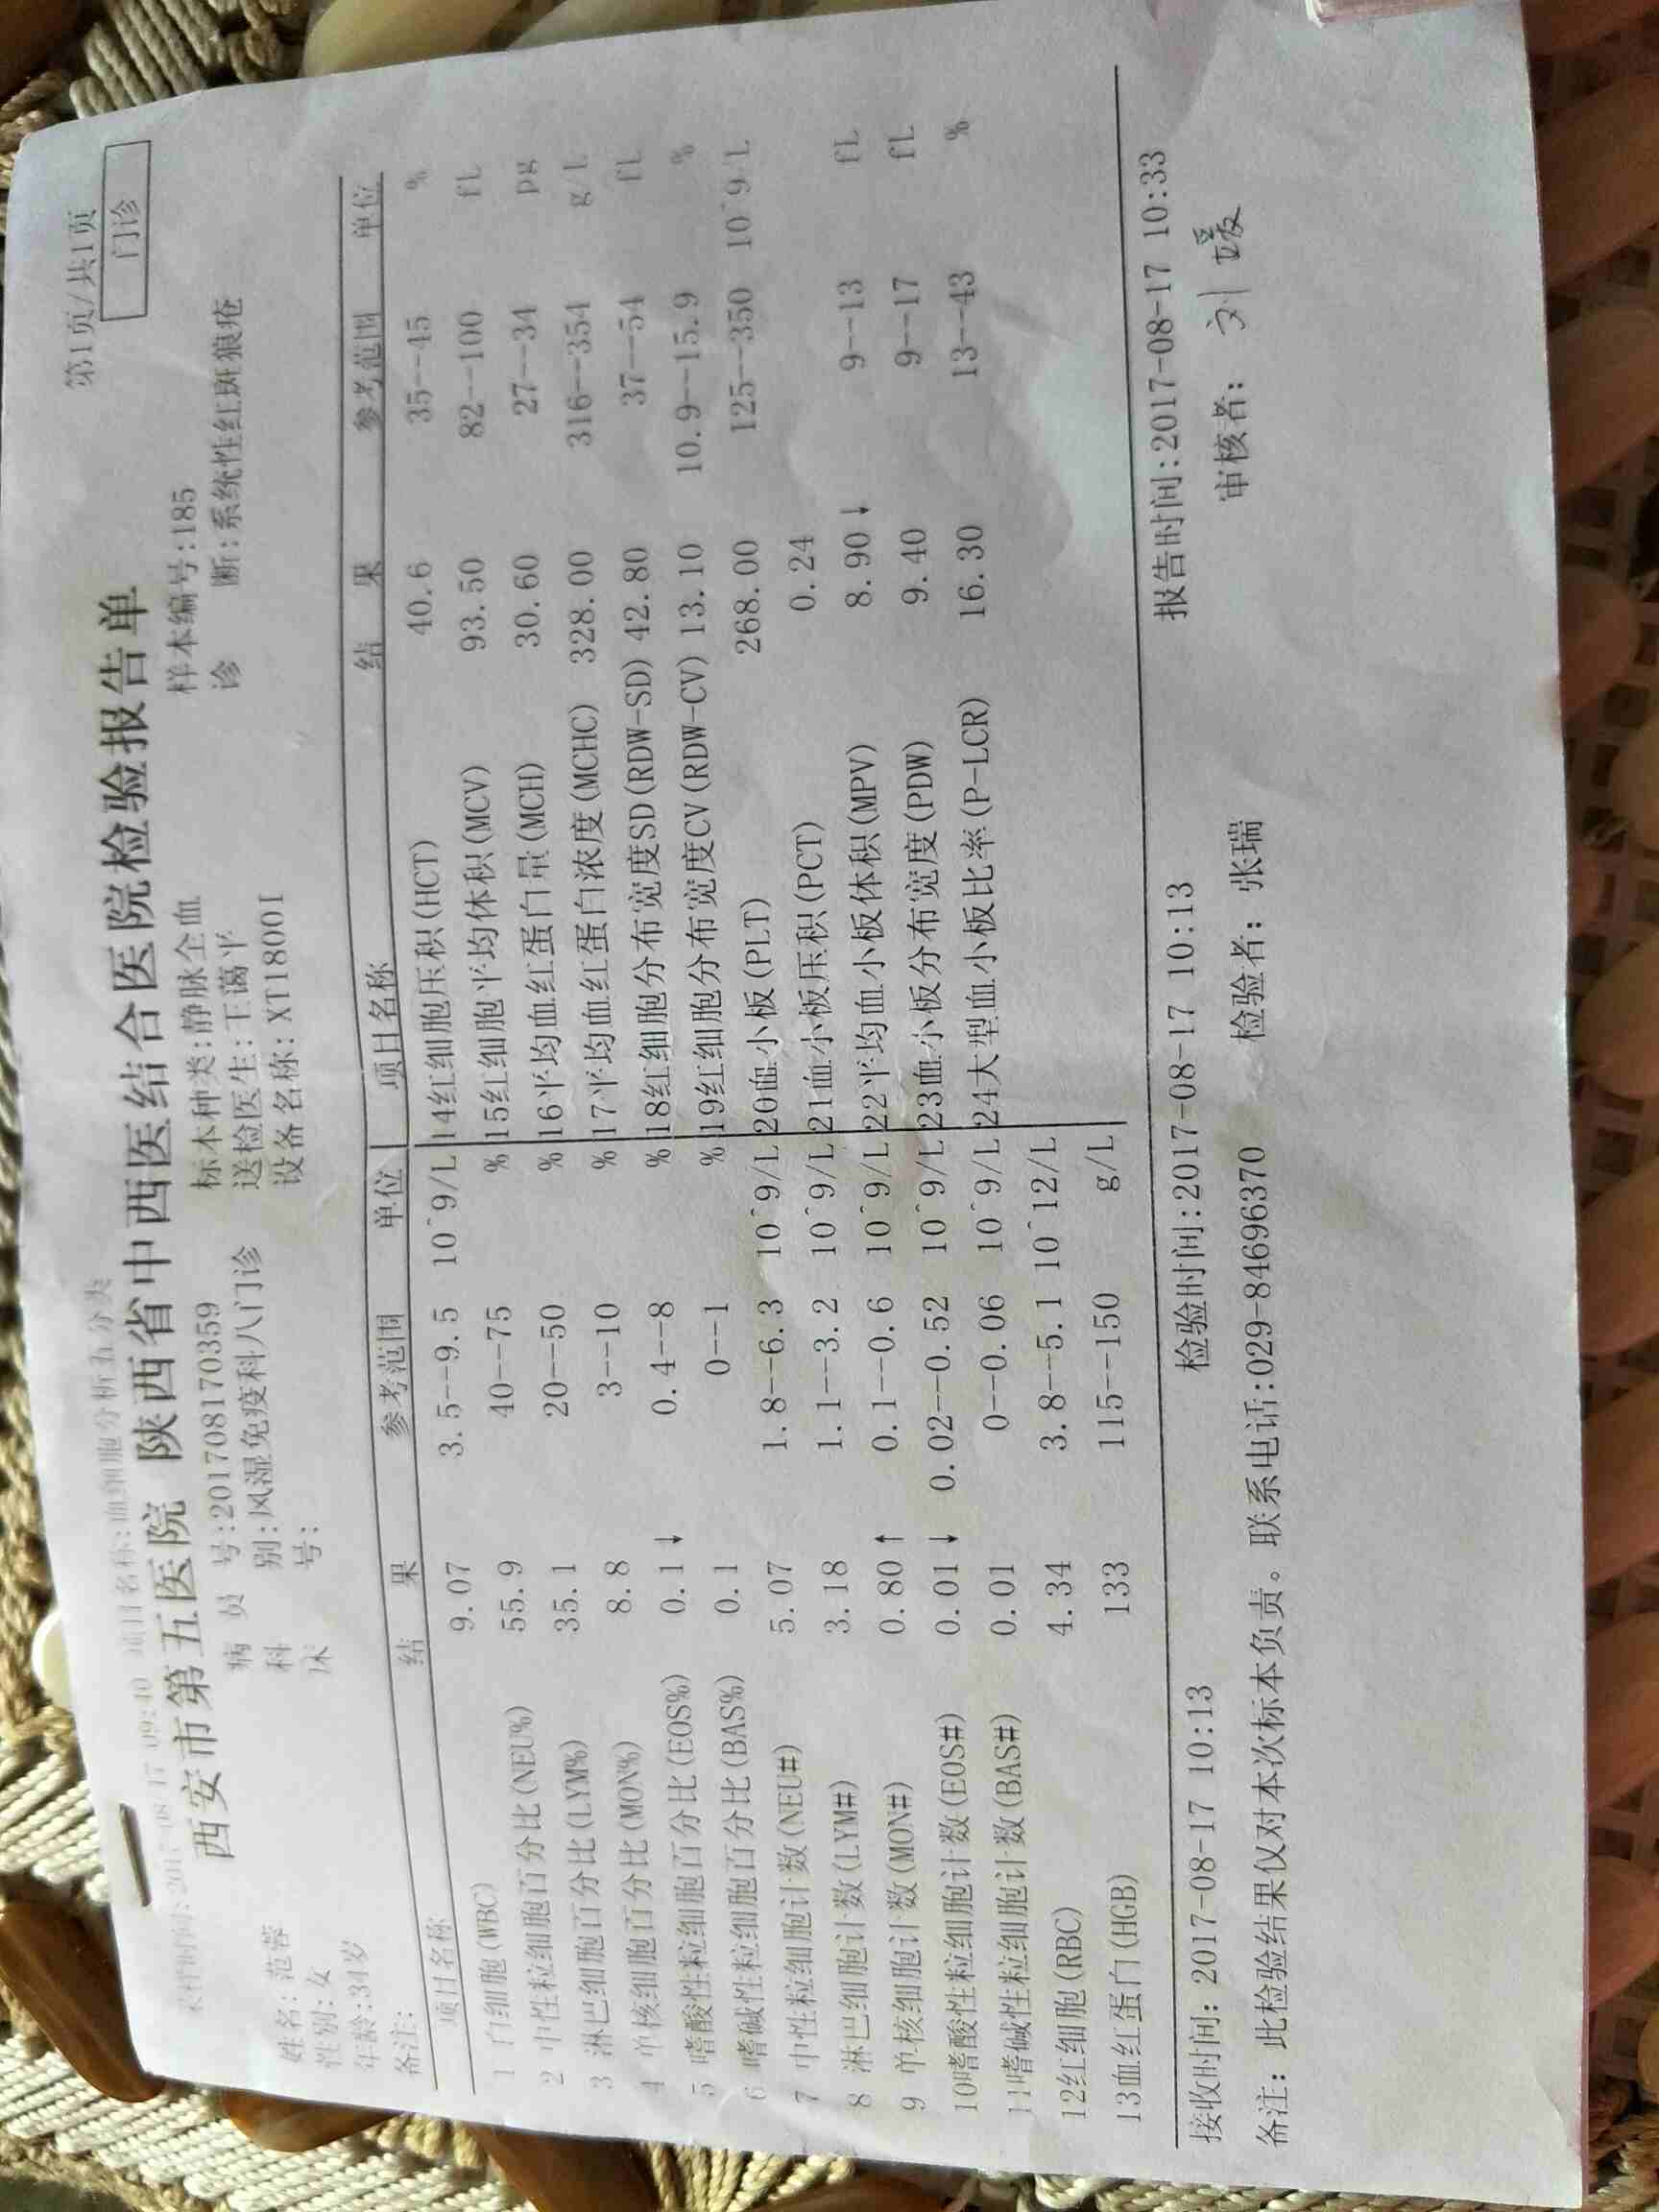 采样时间:2017-08-17 09:40 项目名称:血细胞分析五分类 第1页/共1页
西安市第五医院 陕西省中西医结合医院检验报告单 门诊
姓名:范蓉 病 员 号:201708170359 标本种类:静脉全血 样本编号:185
性别:女 科 别:风湿免疫科八门诊 送检医生:王蔼平 诊 断:系统性红斑狼疮
年龄:34岁 床 号: 设备名称:XT1800I
备注:
项目名称 结 果 参考范围 单位 项目名称 结 果 参考范围 单位
1 白细胞(WBC) 9.07 3.5--9.5 10^9/L 14红细胞压积(HCT) 40.6 35--45 %
2 中性粒细胞百分比(NEU%) 55.9 40--75 % 15红细胞平均体积(MCV) 93.50 82--100 fL
3 淋巴细胞百分比(LYM%) 35.1 20--50 % 16平均血红蛋白量(MCH) 30.60 27--34 pg
4 单核细胞百分比(MON%) 8.8 3--10 % 17平均血红蛋白浓度(MCHC) 328.00 316--354 g/L
5 嗜酸性粒细胞百分比(EOS%) 0.1↓ 0.4--8 % 18红细胞分布宽度SD(RDW-SD) 42.80 37--54 fL
6 嗜碱性粒细胞百分比(BAS%) 0.1 0--1 % 19红细胞分布宽度CV(RDW-CV) 13.10 10.9--15.9 %
7 中性粒细胞计数(NEU#) 5.07 1.8--6.3 10^9/L 20血小板(PLT) 268.00 125--350 10^9/L
8 淋巴细胞计数(LYM#) 3.18 1.1--3.2 10^9/L 21血小板压积(PCT) 0.24
9 单核细胞计数(MON#) 0.80↑ 0.1--0.6 10^9/L 22平均血小板体积(MPV) 8.90↓ 9--13 fL
10嗜酸性粒细胞计数(EOS#) 0.01↓ 0.02--0.52 10^9/L 23血小板分布宽度(PDW) 9.40 9--17 fL
11嗜碱性粒细胞计数(BAS#) 0.01 0--0.06 10^9/L 24大型血小板比率(P-LCR) 16.30 13--43 %
12红细胞(RBC) 4.34 3.8--5.1 10^12/L
13血红蛋白(HGB) 133 115--150 g/L
接收时间:2017-08-17 10:13 检验时间:2017-08-17 10:13 报告时间:2017-08-17 10:33
备注:此检验结果仅对本次标本负责。联系电话:029-84696370 检验者:张瑞 审核者:刘媛